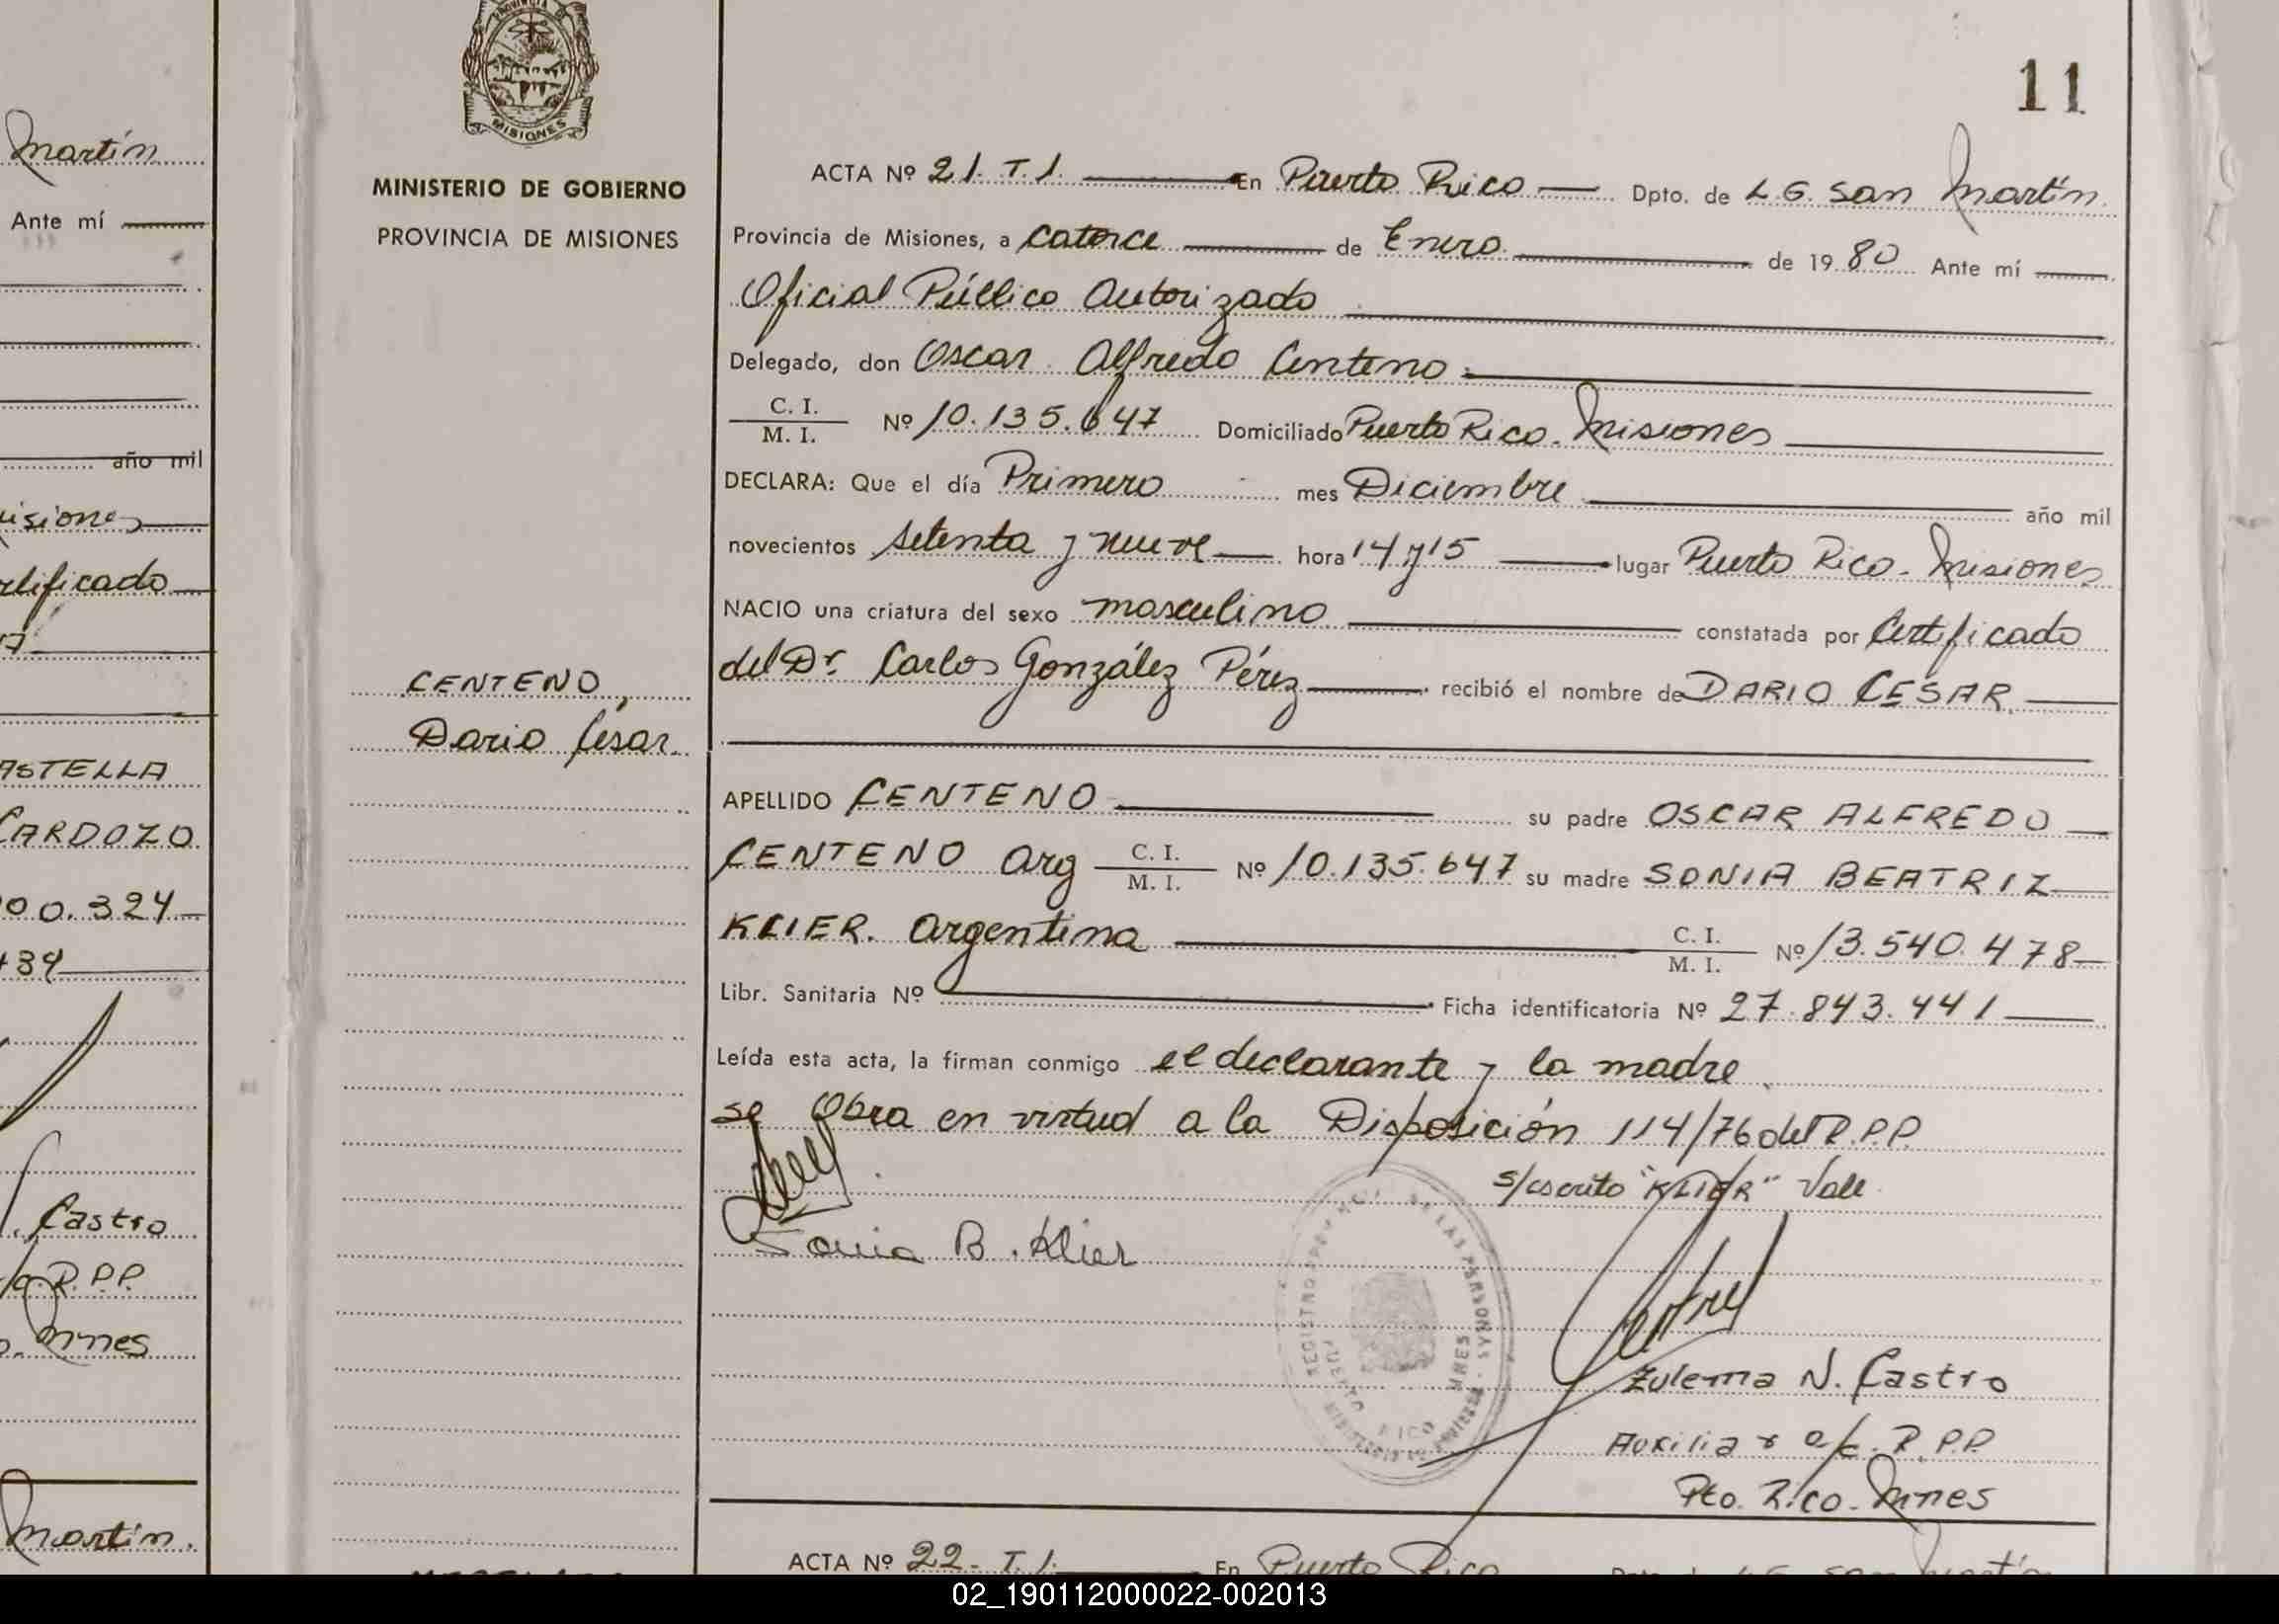 PROVINCIA DE
MISIONES
MINISTERIO DE GOBIERNO
PROVINCIA DE MISIONES
CENTENO,
Dario César.
11
ACTA Nº 21. T. 1. En Puerto Rico Dpto. de L.G. San Martín
Provincia de Misiones, a Catorce de Enero de 1980 Ante mí
Oficial Público Autorizado
Delegado, don Oscar Alfredo Centeno
C. I.
M. I. Nº 10.135.647 Domiciliado Puerto Rico. Misiones
DECLARA: Que el día Primero mes Diciembre año mil
novecientos setenta y nueve hora 14 y 15 lugar Puerto Rico. Misiones
NACIO una criatura del sexo masculino constatada por Certificado
del Dr. Carlos González Pérez recibió el nombre de DARIO CESAR
APELLIDO CENTENO su padre OSCAR ALFREDO
CENTENO Arg C. I. M. I. Nº 10.135.647 su madre SONIA BEATRIZ
KLIER. Argentina C. I. M. I. Nº 13.540.478
Libr. Sanitaria Nº Ficha identificatoria Nº 27.843.441
Leída esta acta, la firman conmigo el declarante y la madre
se Obra en virtud a la Disposición 114/76 del R.P.P.
s/escrito "KLIER" Vale
Sonia B. Klier
Zulema N. Castro
Auxiliar a/c. R.P.P.
Pto. Rico. Mnes
ACTA Nº 22- T. 1. En Puerto Rico
Martín
Ante mí
año mil
Misiones
Certificado
CARDOZO
324
Castro
a/c. R.P.P.
Mnes
Martín.
02_190112000022-002013